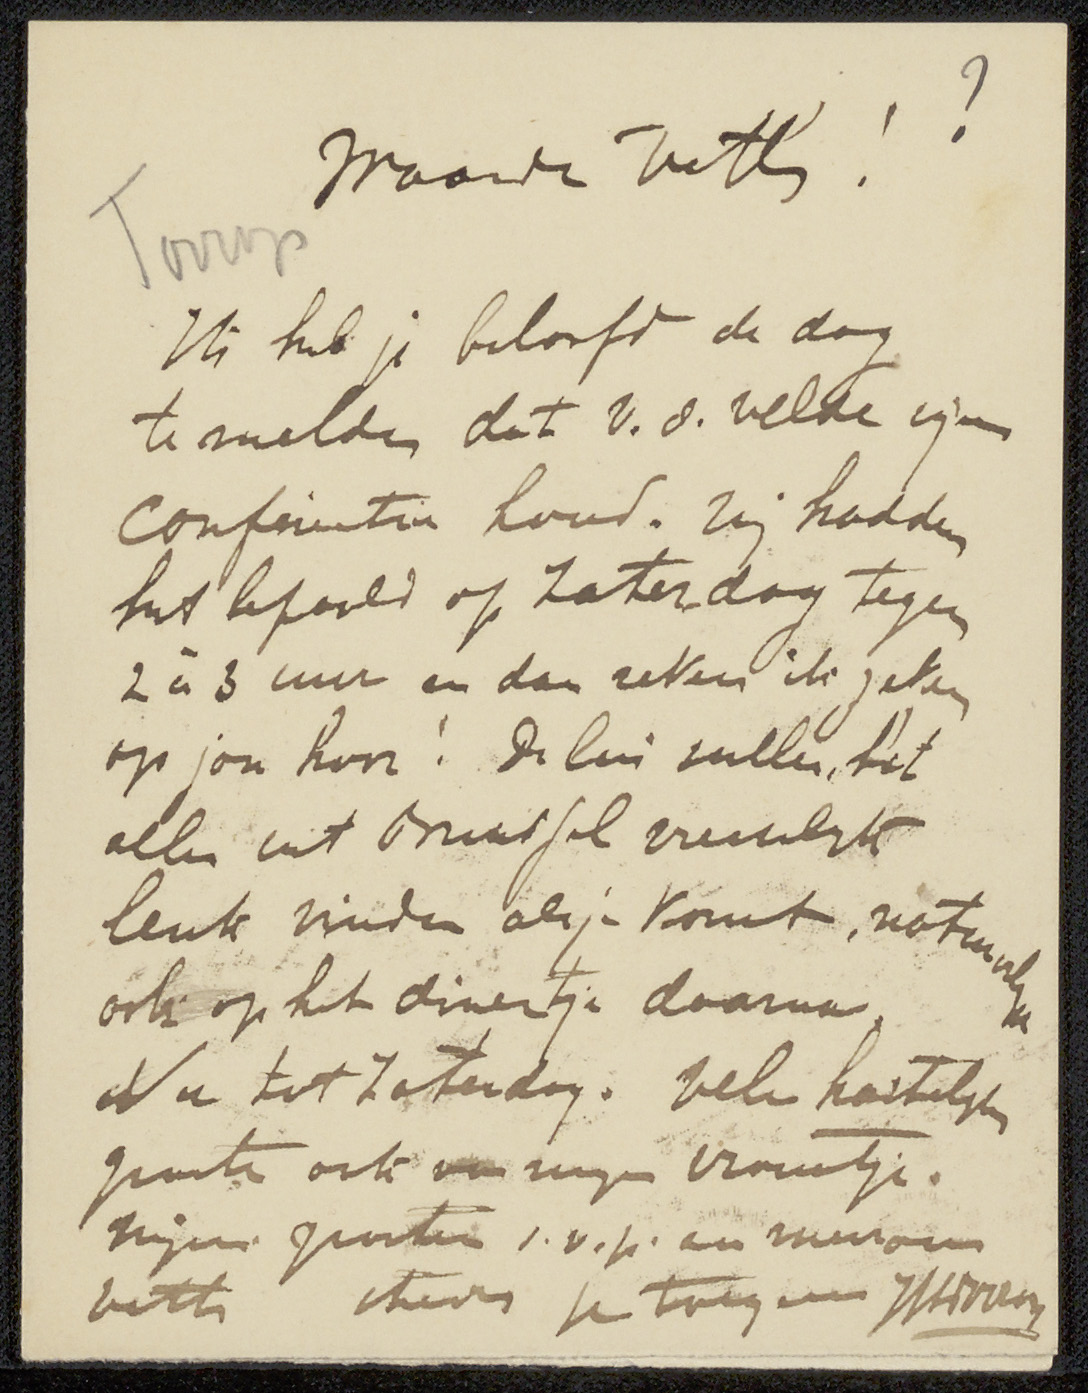 ?
Waarde Veth!
Toorop
Ik heb je beloofd de dag
te melden dat v. d. velde zijn
conferentie houd. Wij hadden
het bepaald op Zaterdag tegen
2 à 3 uur en dan reken ik zeker
op jou hoor! De lui zullen het
allen uit Brussel vreeselyk
leuk vinden als je komt, natuurlyk
ook op het dinertje daarna.
Nu tot Zaterdag. vele hartelyke
groete ook van myn vrouwtje.
mijne groeten s.v.p. aan mevrouw
Veth je toegenegen JTHToorop